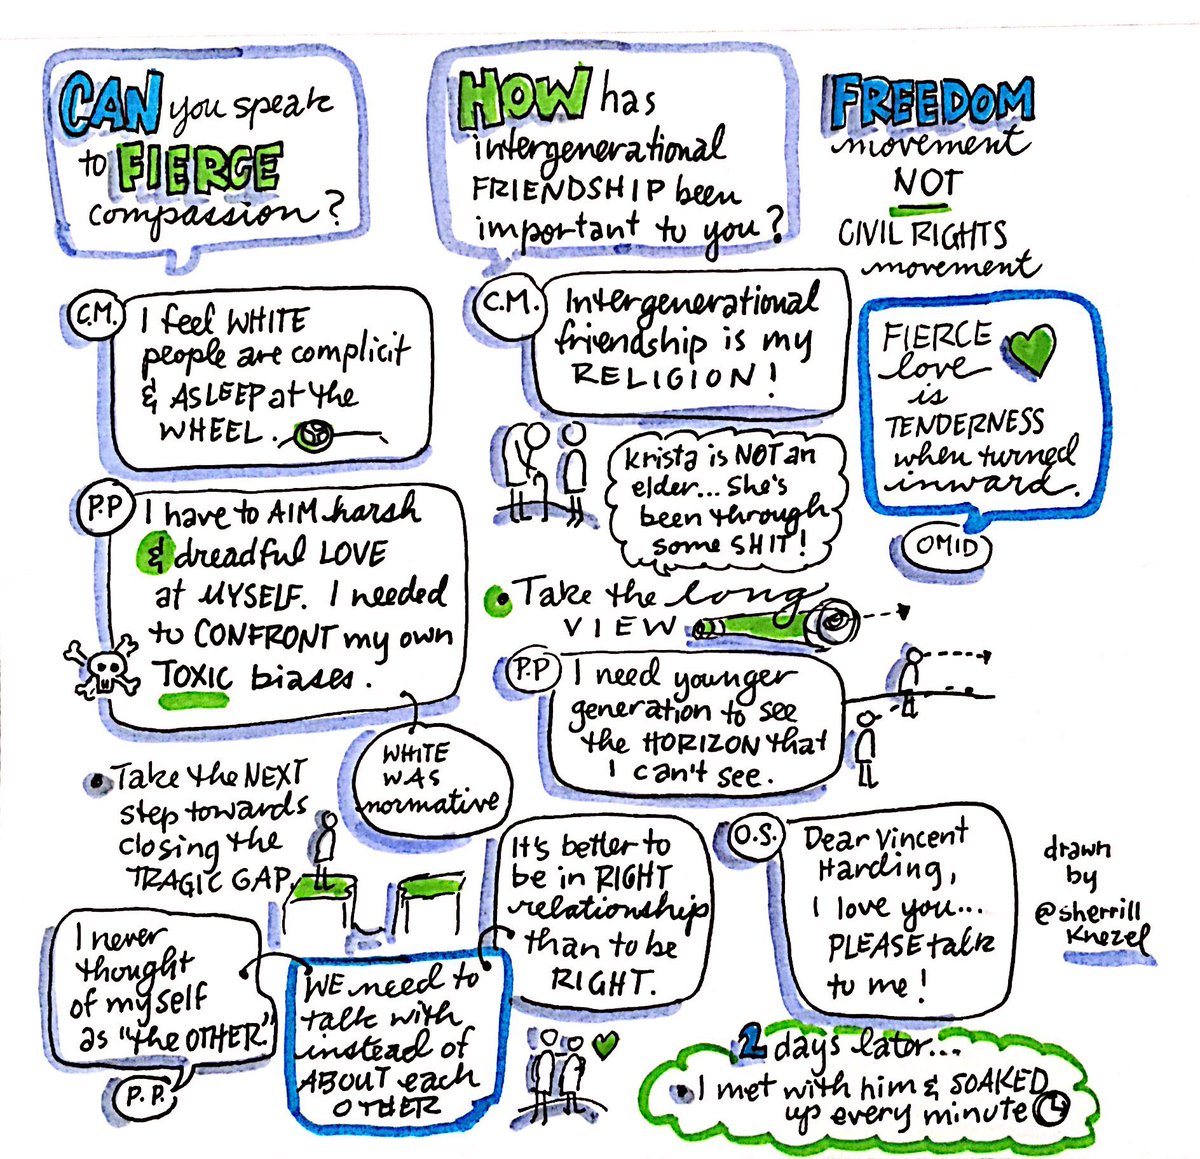 CAN you speak
to FIERCE
compassion?
C.M.
I feel WHITE
people are complicit
& ASLEEP at the
WHEEL.
P.P
I have to AIM harsh
& dreadful LOVE
at MYSELF. I needed
to CONFRONT my own
TOXIC biases.
WHITE
WAS
normative
Take the NEXT
step towards
closing the
TRAGIC GAP.
I never
thought
of myself
as "the OTHER".
P.P.
WE need to
talk with
instead of
ABOUT each
OTHER
It's better to
be in RIGHT
relationship
than to be
RIGHT.
HOW has
intergenerational
FRIENDSHIP been
important to you?
C.M.
Intergenerational
friendship is my
RELIGION!
Krista is NOT an
elder... She's
been through
some SHIT!
Take the long
VIEW
P.P
I need younger
generation to see
the HORIZON that
I can't see.
O.S.
Dear Vincent
Harding,
I love you...
PLEASE talk
to me!
2 days later...
I met with him & SOAKED
up every minute
FREEDOM
movement
NOT
CIVIL RIGHTS
movement
FIERCE
love
is
TENDERNESS
when turned
inward.
OMID
drawn
by
@sherrill
Knezel